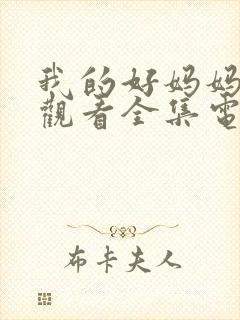 我的好妈妈
觀看全集電
布卡夫人